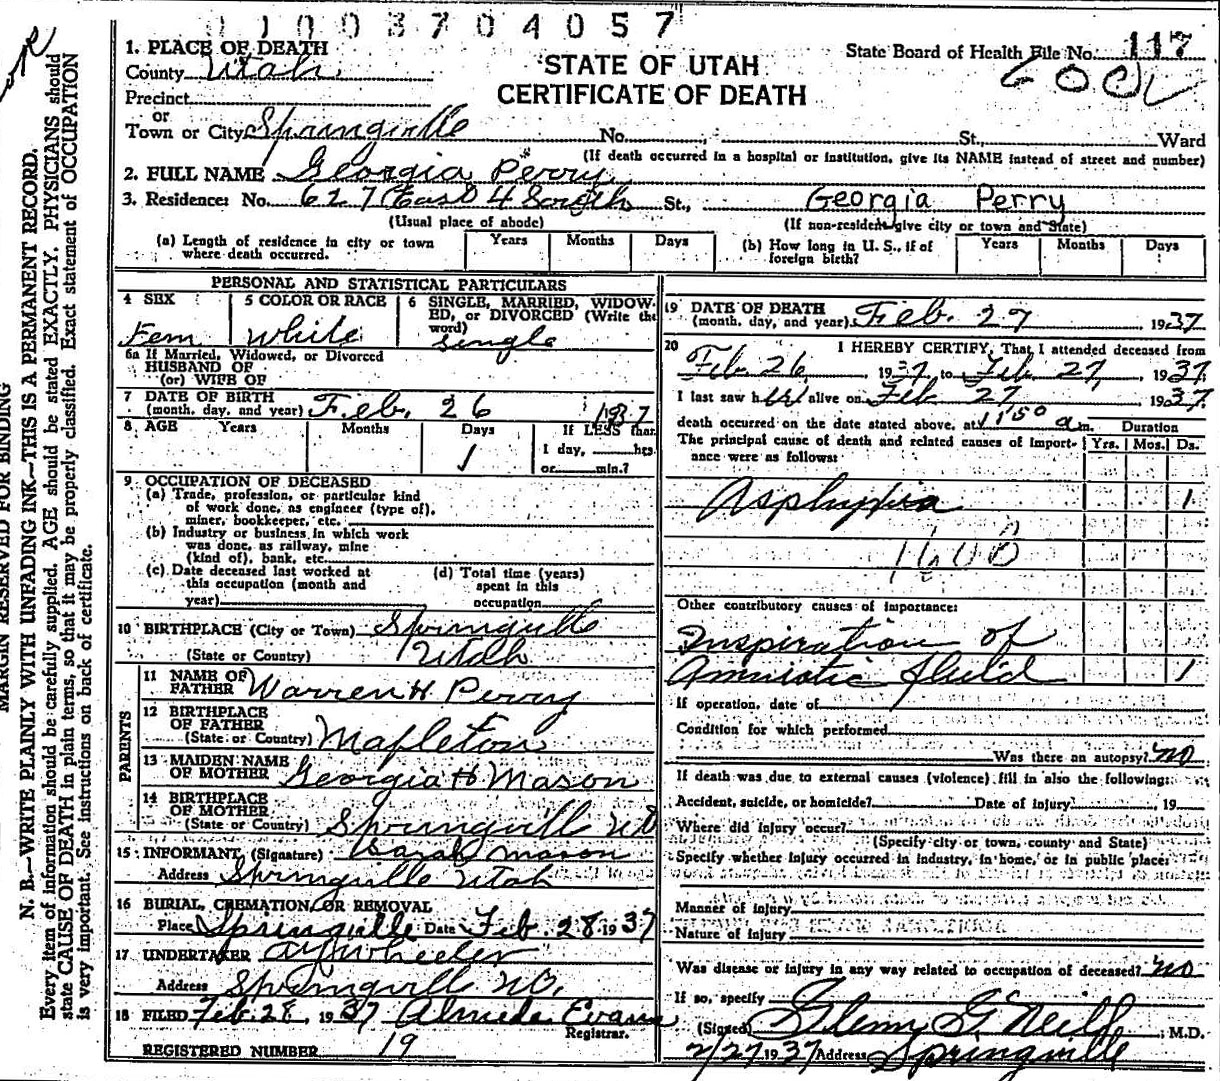 01003704057
1. PLACE OF DEATH
County Utah.
Precinct
or
Town or City Springville No. , St., Ward
(If death occurred in a hospital or institution, give its NAME instead of street and number)
STATE OF UTAH
CERTIFICATE OF DEATH
State Board of Health File No. 117
2. FULL NAME Georgia Perry
3. Residence: No. 627 East 4 South St., Georgia Perry
(Usual place of abode) (If non-resident give city or town and State)
(a) Length of residence in city or town where death occurred. Years Months Days
(b) How long in U. S., if of foreign birth? Years Months Days
PERSONAL AND STATISTICAL PARTICULARS
4 SEX Fem
5 COLOR OR RACE White
6 SINGLE, MARRIED, WIDOWED, or DIVORCED (Write the word) Single
6a If Married, Widowed, or Divorced
HUSBAND OF
(or) WIFE OF
7 DATE OF BIRTH
(month, day, and year) Feb. 26 1937
8 AGE Years Months Days If LESS than
1 1 day, hrs.
or min.?
9 OCCUPATION OF DECEASED
(a) Trade, profession, or particular kind
of work done, as engineer (type of),
miner, bookkeeper, etc.
(b) Industry or business in which work
was done, as railway, mine
(kind of), bank, etc.
(c) Date deceased last worked at
this occupation (month and
year)
(d) Total time (years)
spent in this
occupation
10 BIRTHPLACE (City or Town) Springville
(State or Country) Utah
PARENTS
11 NAME OF FATHER Warren H Perry
12 BIRTHPLACE OF FATHER
(State or Country) Mapleton
13 MAIDEN NAME OF MOTHER Georgia H Mason
14 BIRTHPLACE OF MOTHER
(State or Country) Springville Ut
15 INFORMANT (Signature) Sarah Mason
Address Springville Utah
16 BURIAL, CREMATION, OR REMOVAL
Place Springville Date Feb. 28 1937
17 UNDERTAKER A Y Wheeler
Address Springville Ut.
18 FILED Feb. 28, 1937 Almeda Evans
Registrar.
REGISTERED NUMBER 19
19 DATE OF DEATH
(month, day, and year) Feb. 27, 1937
20 I HEREBY CERTIFY, That I attended deceased from
Feb. 26, 1937, to Feb. 27, 1937.
I last saw her alive on Feb 27 1937
death occurred on the date stated above, at 11:50 a m. Duration
The principal cause of death and related causes of importance were as follows: Yrs. Mos. Ds.
Asphyxia 1
160B
Other contributory causes of importance:
Inspiration of
Amniotic fluid 1
If operation, date of
Condition for which performed
Was there an autopsy? no
If death was due to external causes (violence) fill in also the following:
Accident, suicide, or homicide? Date of injury , 19
Where did injury occur?
(Specify city or town, county and State)
Specify whether injury occurred in industry, in home, or in public place:
Manner of injury
Nature of injury
Was disease or injury in any way related to occupation of deceased? no
If so, specify
(Signed) Glenn G. Neill, M.D.
2/27 1937 Address Springville
MARGIN RESERVED FOR BINDING
N. B.—WRITE PLAINLY WITH UNFADING INK—THIS IS A PERMANENT RECORD.
Every item of information should be carefully supplied. AGE should be stated EXACTLY. PHYSICIANS should
state CAUSE OF DEATH in plain terms, so that it may be properly classified. Exact statement of OCCUPATION
is very important. See instructions on back of certificate.